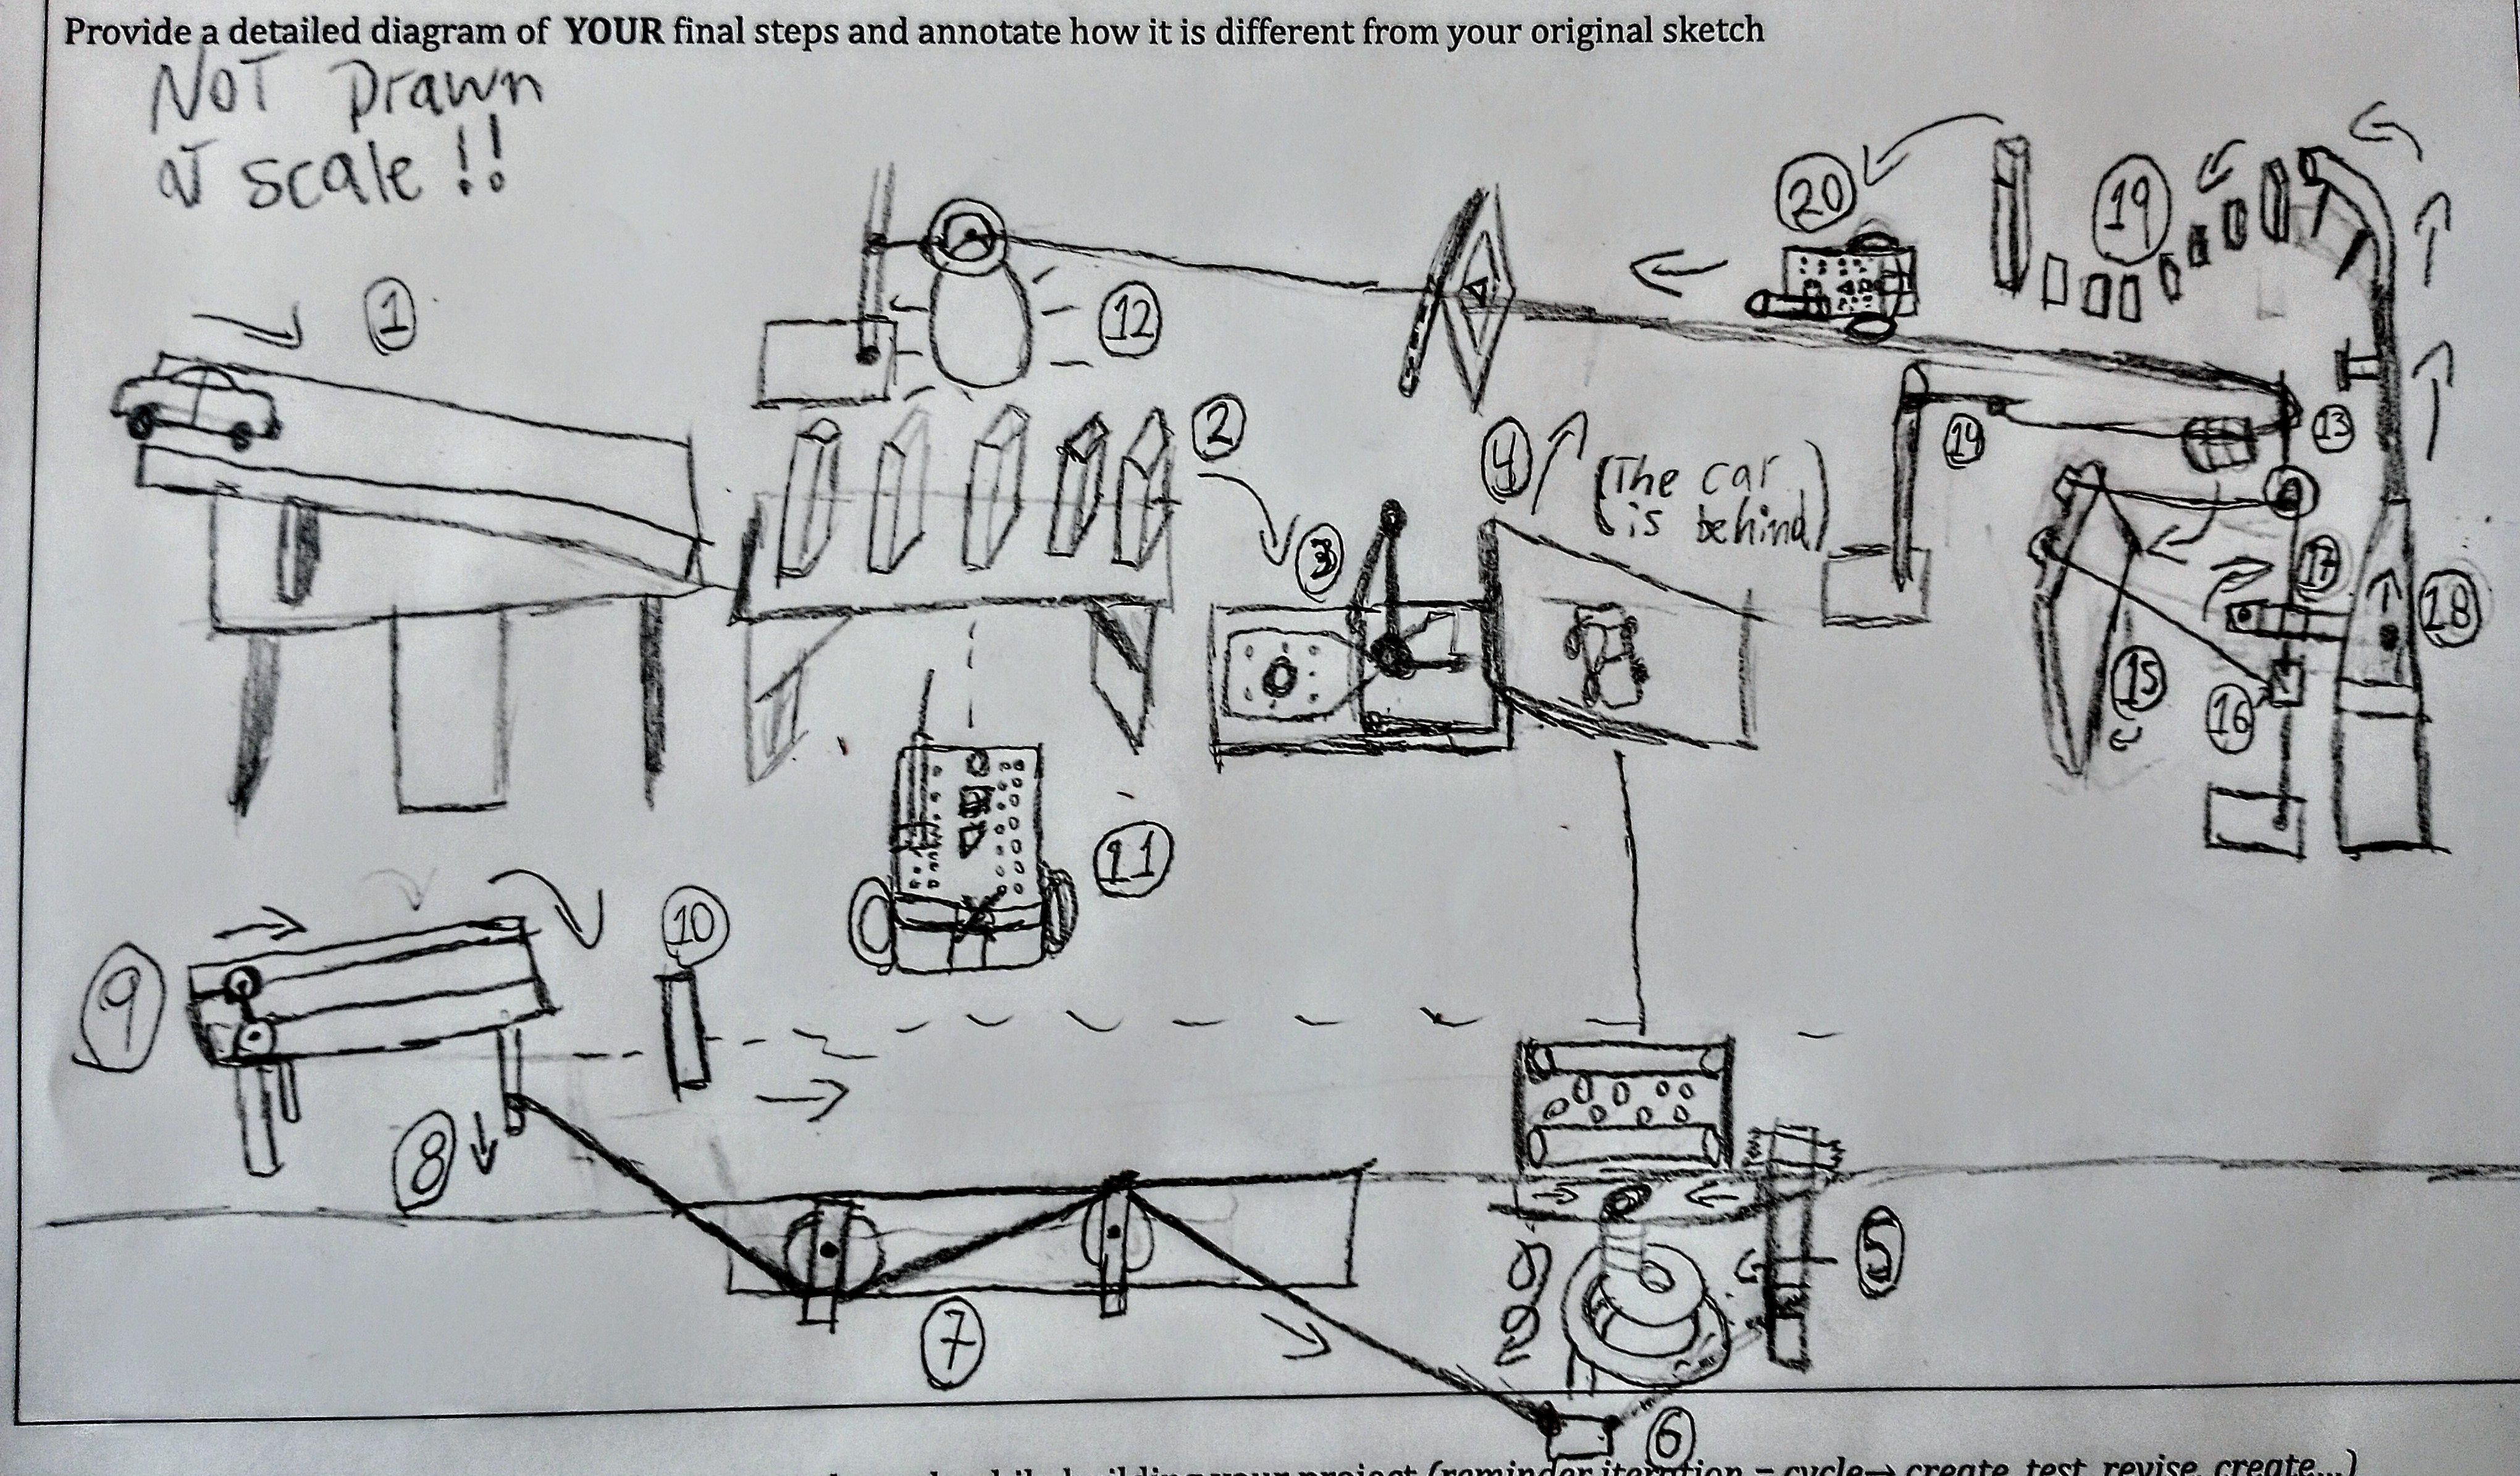 Provide a detailed diagram of YOUR final steps and annotate how it is different from your original sketch
NOT Drawn
at scale!!
1
12
20
19
2
3
4
(The car
is behind)
14
13
17
18
15
16
11
9
10
8
7
5
6
building your project (reminder iteration = cycle→ create, test, revise, create...)